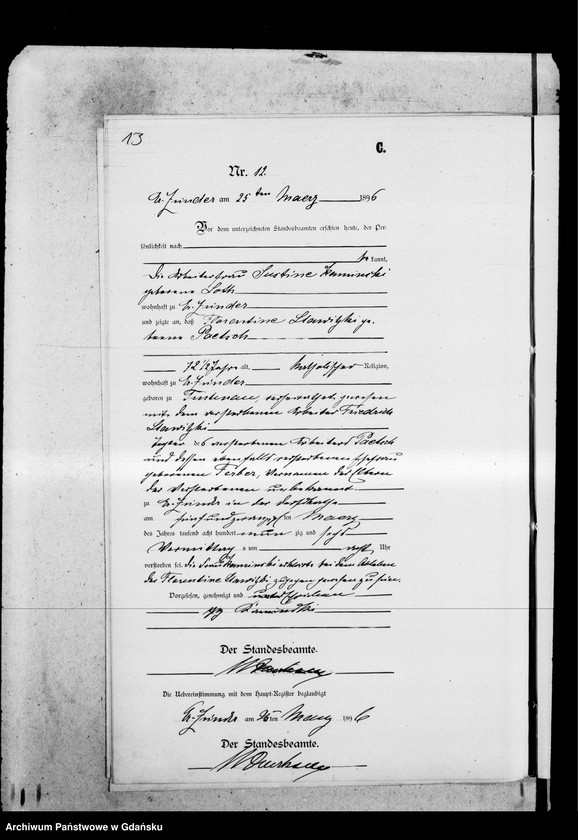 13
C.
Nr. 12.
Gr. Zünder am 25ten Maerz 1896
Vor dem unterzeichneten Standesbeamten erschien heute, der Per-
sönlichkeit nach
kannt,
die Arbeiterfrau Justine Kaminski
geborene Loth
wohnhaft zu Gr. Zünder
und zeigte an, daß Florentine Slawitzki ge-
borene Paetsch
72 1/2 Jahre alt, katholischer Religion,
wohnhaft zu Gr. Zünder
geboren zu verheirathet gewesen
mit dem verstorbenen Arbeiter Friedrich
Slawitzki
Tochter des verstorbenen Arbeiters Paetsch
und dessen ebenfalls verstorbenen Ehefrau
geborenen Ferber, Vornamen der Eltern
der Verstorbenen unbekannt.
zu Gr. Zünder in der
am fünfundzwanzigsten Maerz
des Jahres tausend acht hundert neunzig und sechs
Vormittag s um acht Uhr
verstorben sei. die Frau Kaminski erklärte bei dem Ableben
der Florentine Slawitzki zugegen gewesen zu sein.
Vorgelesen, genehmigt und unterschrieben
gez Kaminski
Der Standesbeamte.
Die Uebereinstimmung mit dem Haupt-Register beglaubigt
Gr. Zünder am ten Maerz 1896
Der Standesbeamte.
Archiwum Państwowe w Gdańsku